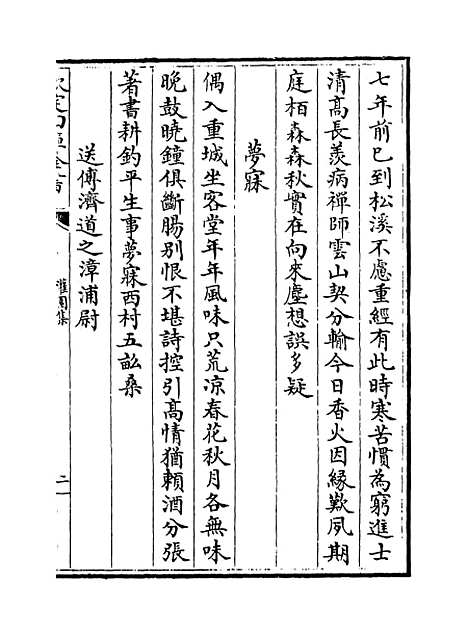 七年前已到松溪不慮重經有此時寒苦慣為窮進士
清高長羨病禪師雲山契分輸今日香火因緣歎夙期
庭栢森森秋實在向來塵想誤多疑
夢寐
偶入重城坐客堂年年風味只荒凉春花秋月各無味
晚鼓曉鐘俱斷腸別恨不堪詩控引高情猶賴酒分張
著書耕釣平生事夢寐西村五畝桑
送傅濟道之漳浦尉
欽定四庫全書
灌園集
二